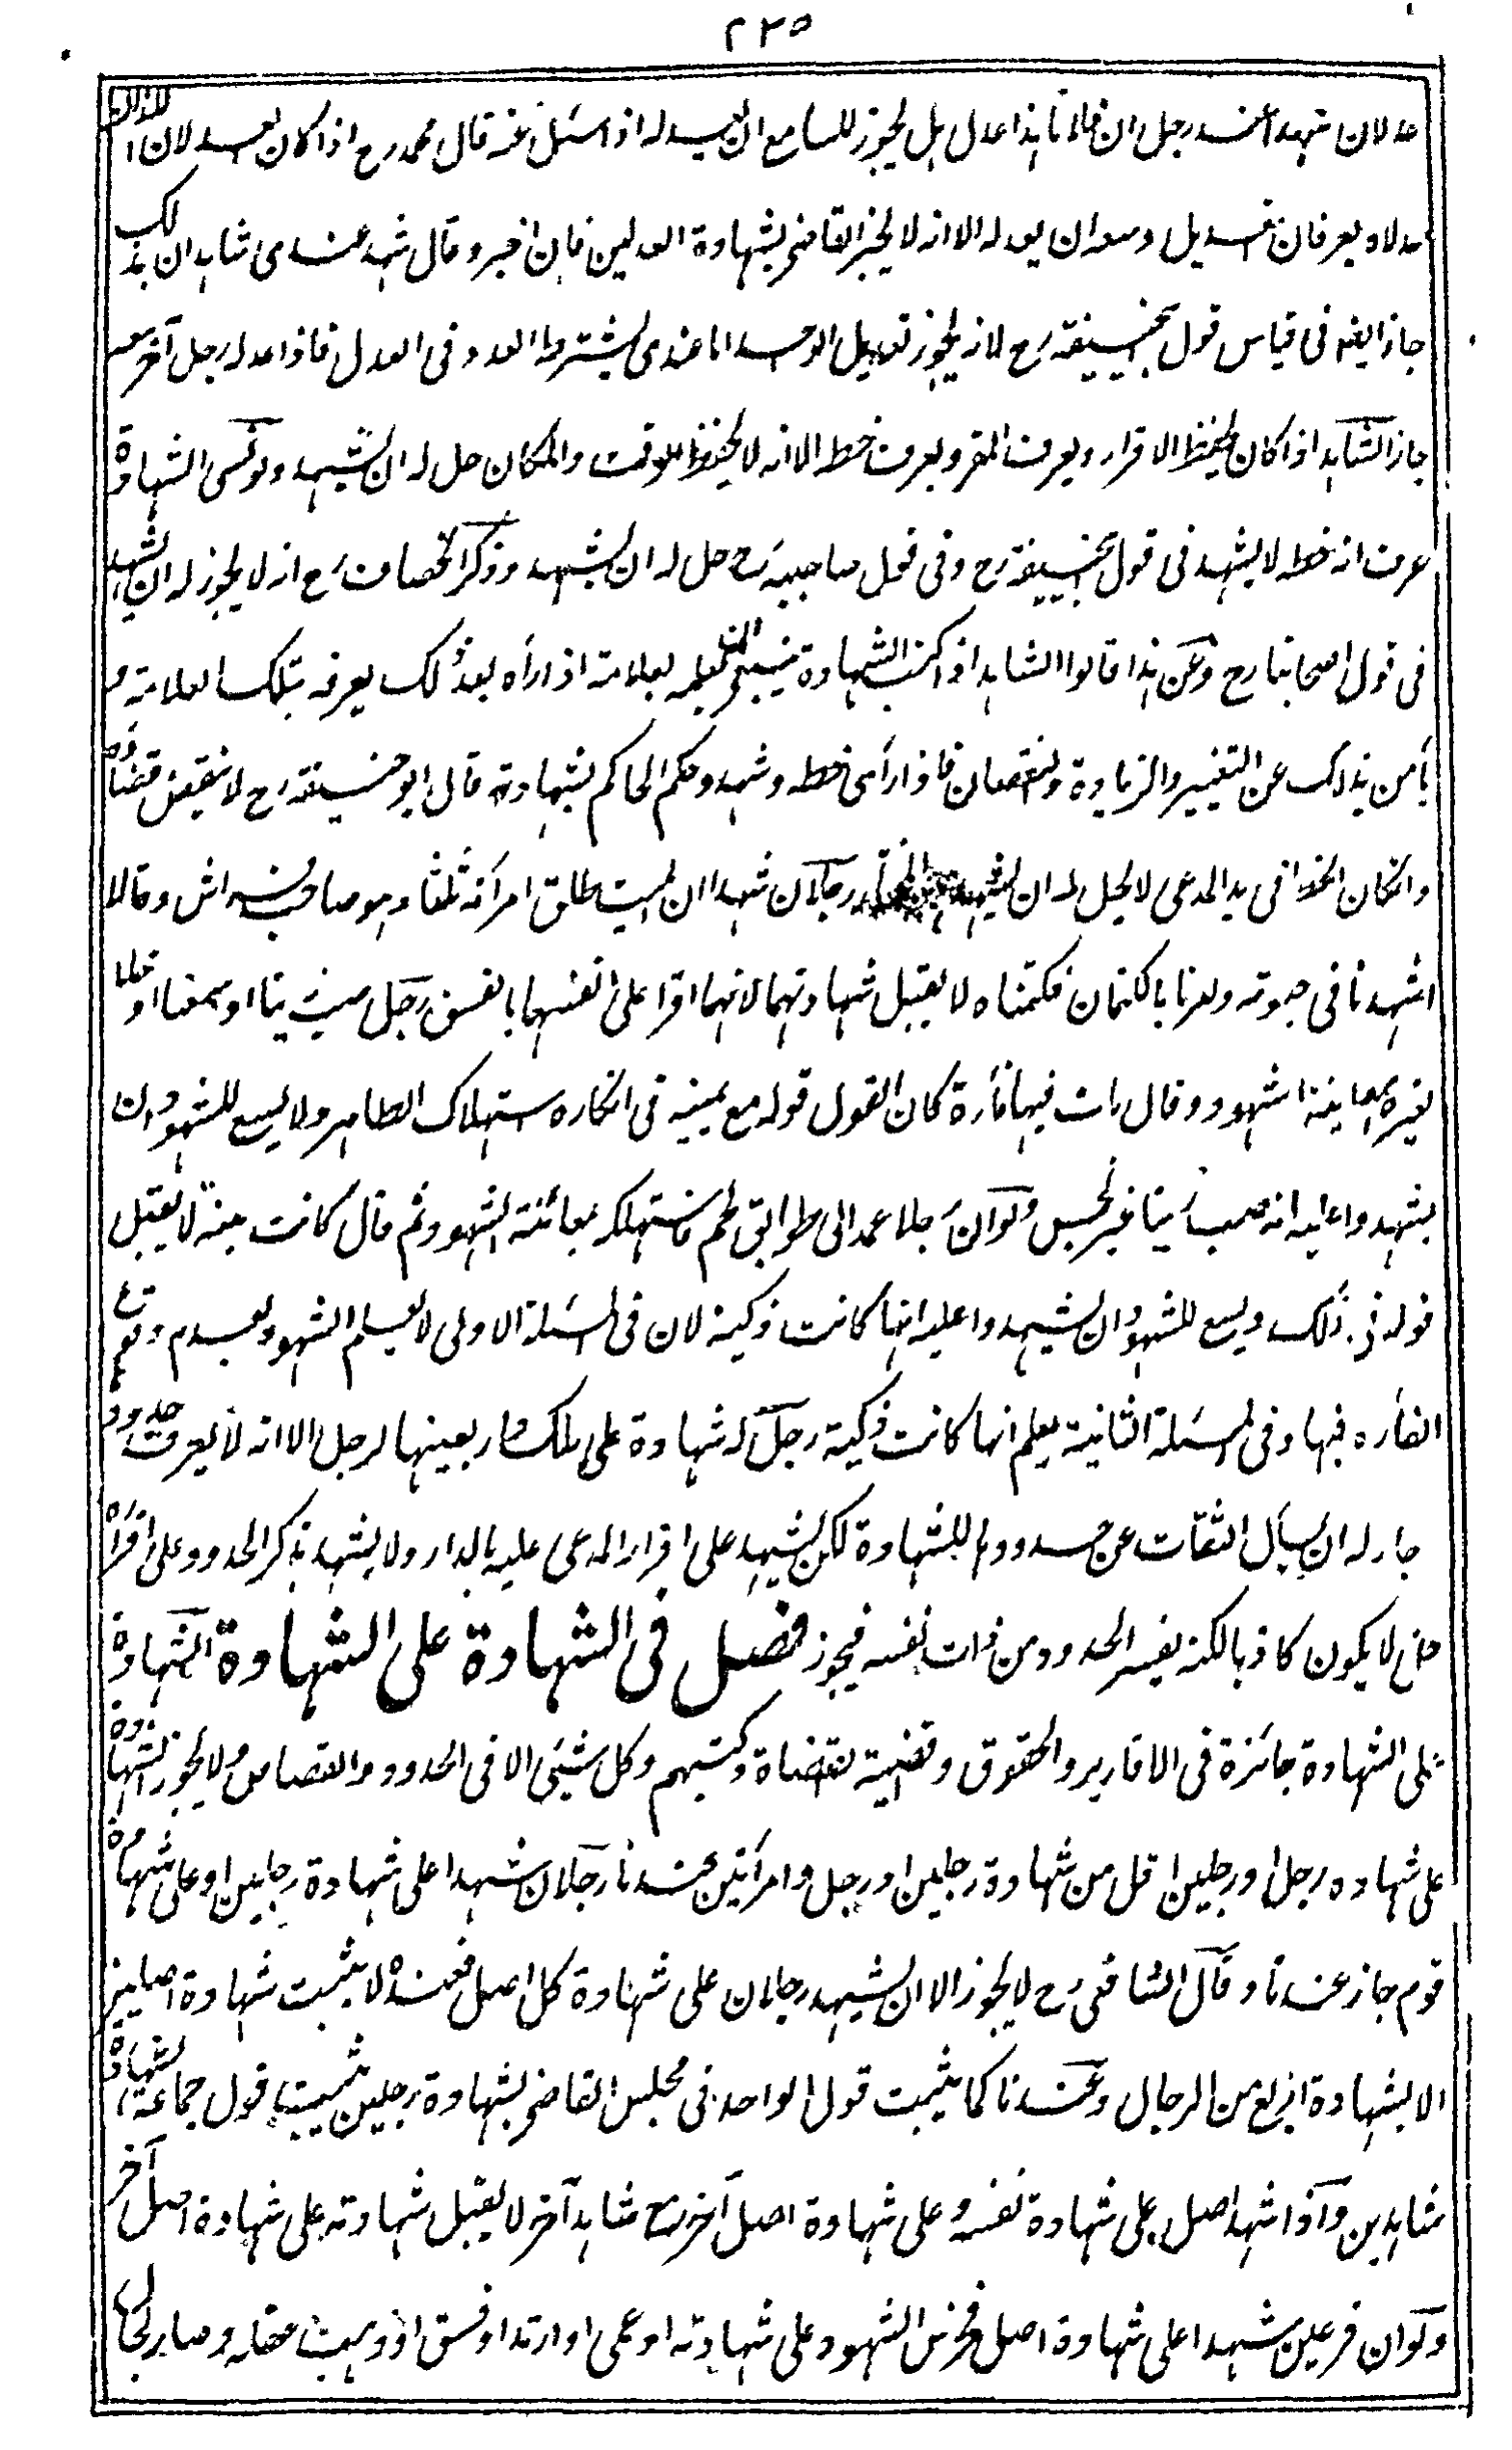 ٢٣٥
عدلان شهدا عند رجل ان فلانا هذا عدل هل يجوز للسامع ان يعدله اذا سئل عنه قال محمد رح اذا كان يعدلان اللذان
عدلا ويعرفان تعديل وسعه ان يعدله الا انه لا يخبر القاضى بشهادة العدلين فان اخبر وقال شهد عندى شاهدان بذلك
جاز ايضا فى قياس قول ابيحنيفة رح لانه يجوز تعديل الواحد اما عندى يشترط العدد فى العدل فاذا عدله رجل آخر معه
جاز الشاهد اذا كان يحفظ الاقرار ويعرف المقر ويعرف خطه الا انه لا يحفظ الوقت والمكان حل له ان يشهد ولو نسى الشهادة
عرف انه خطه لا يشهد فى قول ابيحنيفة رح وفى قول صاحبيه رح حل له ان يشهد وذكر الخصاف رح انه لا يجوز له ان يشهد
فى قول اصحابنا رح وعن هذا قالوا الشاهد اذا كتب الشهادة ينبغى ان يعلمه بعلامة اذا رآه بعد ذلك يعرفه بتلك العلامة و
يأمن بذلك عن التغيير والزيادة والنقصان فاذا رأى خطه وشهد وحكم الحاكم بشهادته قال ابو حنيفة رح لا ينقض قضاؤه
وانكان الخط فى يد المدعى لا يحل له ان يشهد رجلان شهدا ان الميت طلق امرأته ثلثا وهو صاحب فراش وقالا
اشهدنا فى حيوته وامرنا بالكتمان فكتمناه لا يقبل شهادتهما لانهما اقرا على انفسهما بالفسق رجل صب زيتا او سمنا او خلا
لغيره بمعاينة الشهود وقال ماتت فيها فأرة كان القول قوله مع يمينه فى انكاره استهلاك الطاهر ولا يسع للشهود ان
يشهدوا عليه انه صب زيتا غير نجس ولو ان رجلا عمد الى طوابق لحم فاستهلكه بمعائنة الشهود ثم قال كانت ميتة لا يقبل
قوله فى ذلك ويسع للشهود ان يشهدوا عليه انها كانت ذكية لان فى المسئلة الاولى لا يعلم الشهود بعدم وقوع
الفأرة فيها وفى المسئلة الثانية يعلم انها كانت ذكية رجل له شهادة على ملك دار بعينها لرجل الا انه لا يعرف حدود
جاز له ان يسأل الثقات عن حدودها للشهادة لكن يشهد على اقرار المدعى عليه بالدار ولا يشهد بذكر الحدود على اقراره
حتى لا يكون كاذبا لكنه يفسر الحدود من ذات نفسه فيجوز فصل فى الشهادة على الشهادة الشهادة
على الشهادة جائزة فى الاقارير والحقوق وقضية القضاة وكتبهم وكل شيئى الا فى الحدود والقصاص ولا يجوز الشهادة
على شهادة رجل او رجلين اقل من شهادة رجلين او رجل وامرأتين عندنا رجلان شهدا على شهادة رجلين او على شهادة
قوم جاز عندنا وقال الشافعى رح لا يجوز الا ان يشهد رجلان على شهادة كل اصل فعنده لا يثبت شهادة اصلين
الا بشهادة اربع من الرجال وعندنا كما يثبت قول الواحد فى مجلس القاضى بشهادة رجلين يثبت قول جماعة بشهادة
شاهدين واذا شهد اصل على شهادة نفسه وعلى شهادة اصل آخر مع شاهد آخر لا يقبل شهادته على شهادة اصل آخر
ولو ان فرعين شهدا على شهادة اصل فخرس الشهود على شهادته او عمى او ارتد او فسق او ذهب عقله وصار بحال